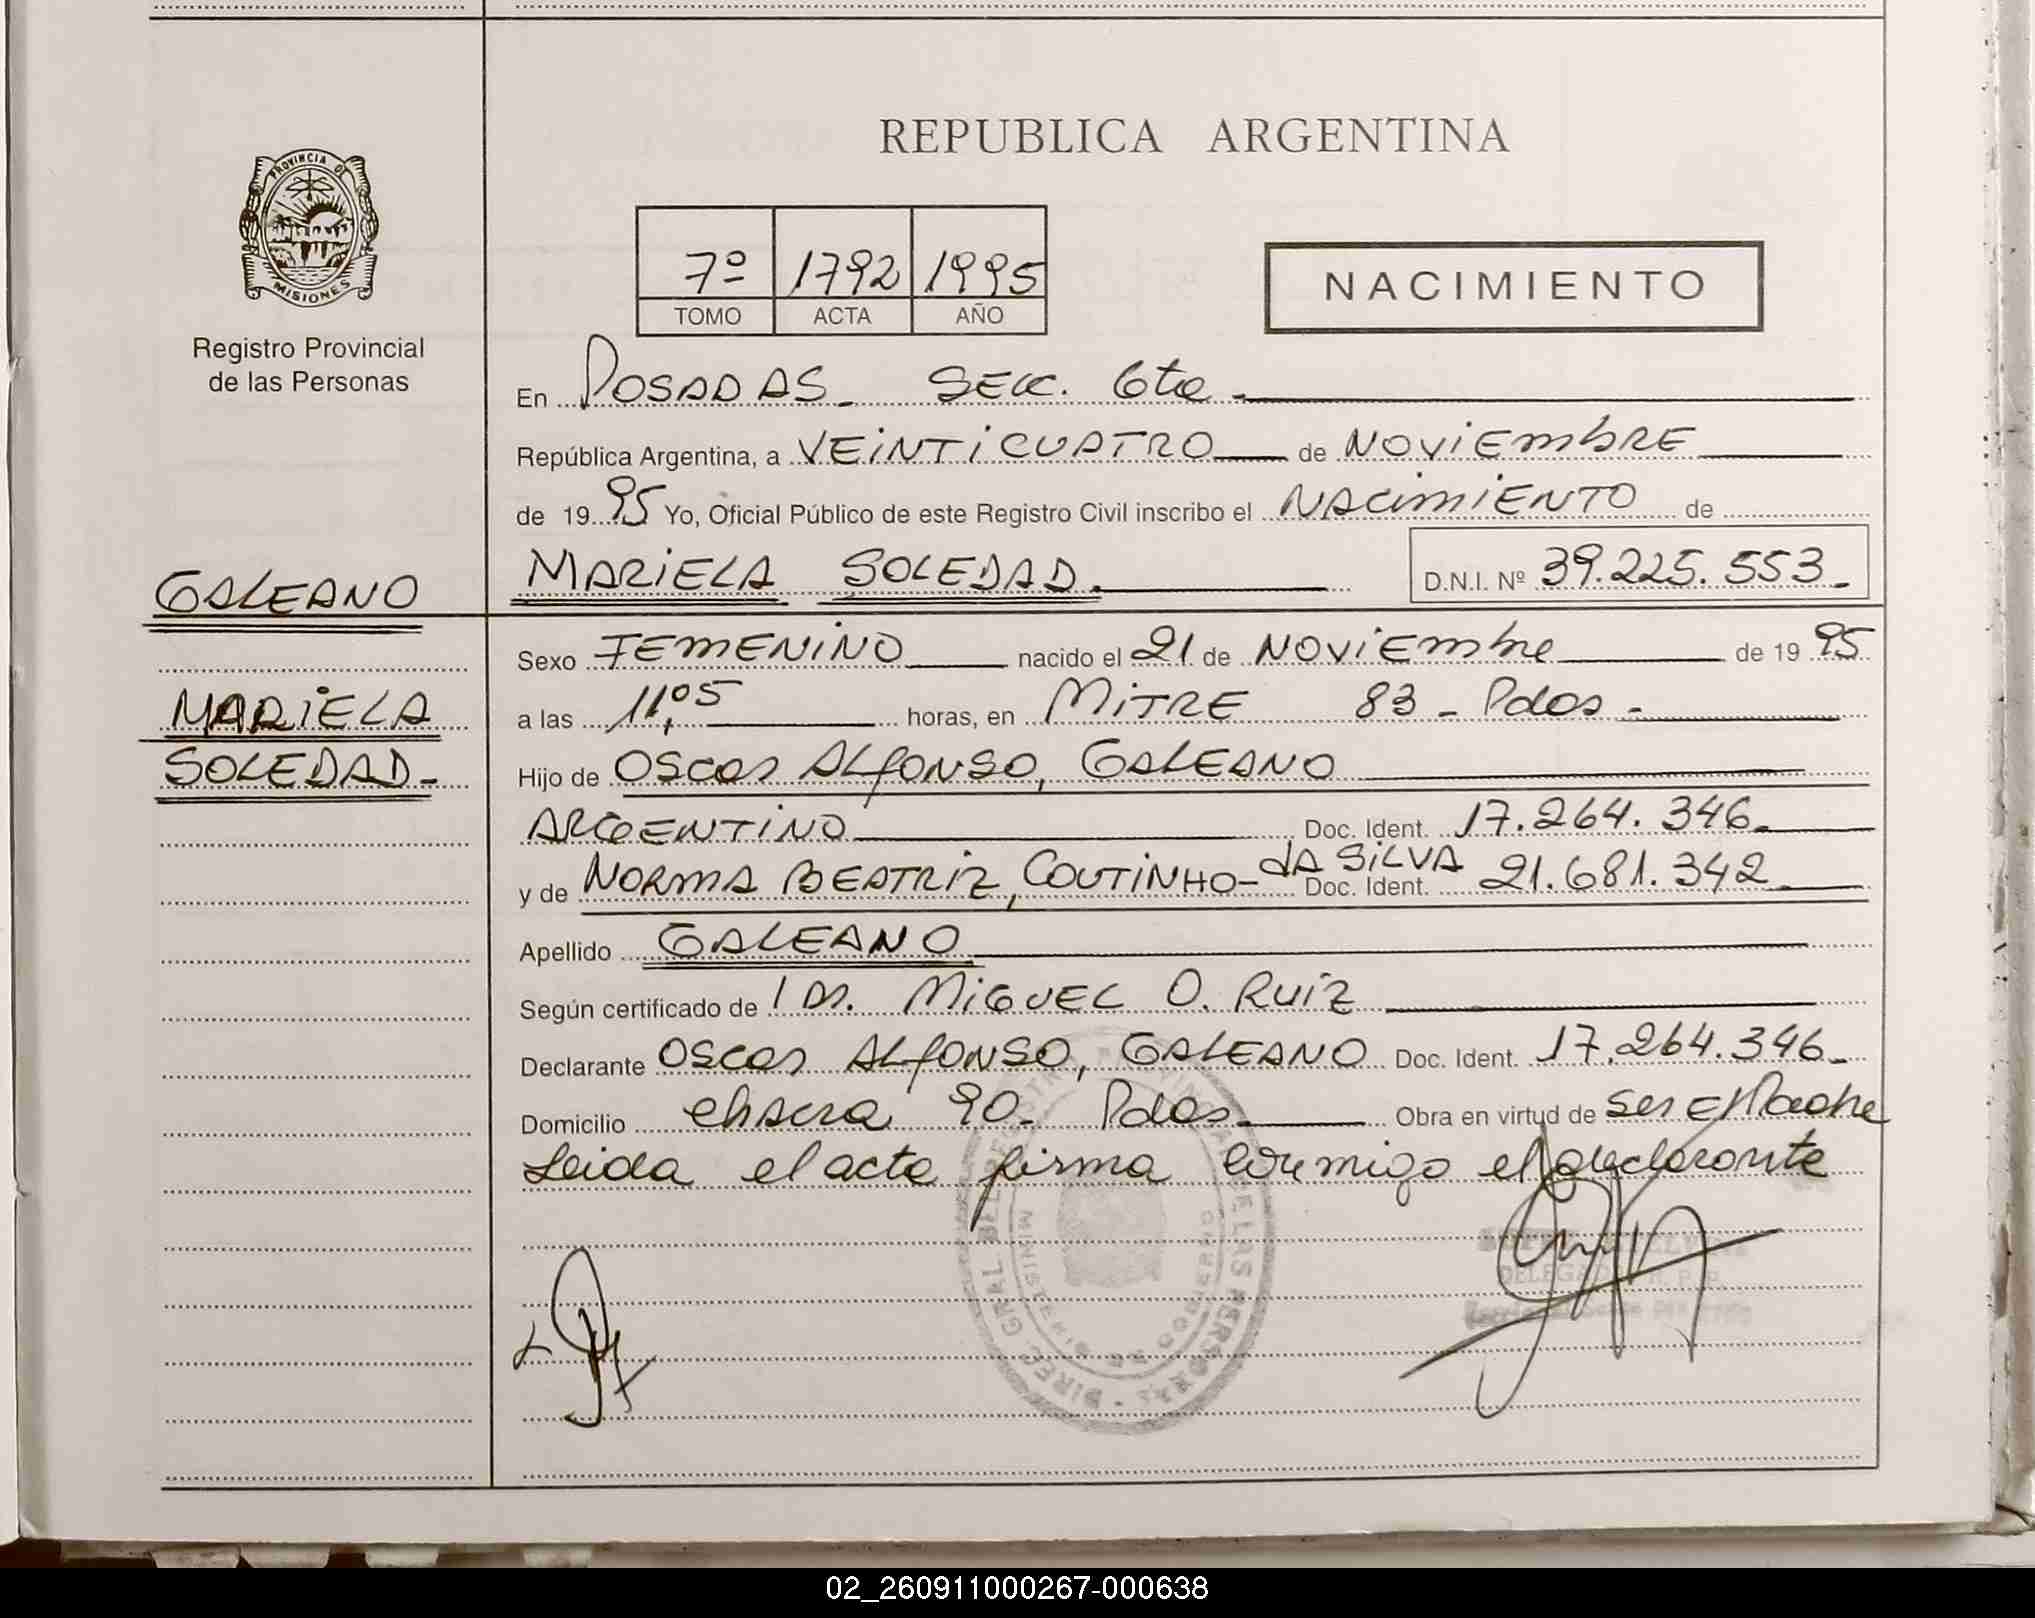 REPUBLICA ARGENTINA
PROVINCIA DE
MISIONES
Registro Provincial
de las Personas
7º 1792 1995
TOMO ACTA AÑO
NACIMIENTO
En POSADAS - SECC. 6ta -
República Argentina, a VEINTICUATRO de NOVIEMBRE
de 1995 Yo, Oficial Público de este Registro Civil inscribo el NACIMIENTO de
GALEANO
MARIELA SOLEDAD. D.N.I. Nº 39.225.553-
Sexo FEMENINO nacido el 21 de NOVIEMbre de 1995
MARIELA
a las 11,05 horas, en MITRE 83 - Pdas -
SOLEDAD-
Hijo de OSCAR ALFONSO, GALEANO
ARGENTINO Doc. Ident. 17.264.346-
y de NORMA BEATRIZ, COUTINHO-dA SILVA Doc. Ident. 21.681.342
Apellido GALEANO
Según certificado de Dr. MIGUEL O. RUIZ
Declarante OSCAR ALFONSO, GALEANO Doc. Ident. 17.264.346-
Domicilio chacra 90- Pdas- Obra en virtud de ser el Padre
Leida el acta firma conmigo el declarante
DIREC. GRAL. DEL REGISTRO PROVINCIAL DE LAS PERSONAS
MINISTERIO DE GOBIERNO
02_260911000267-000638